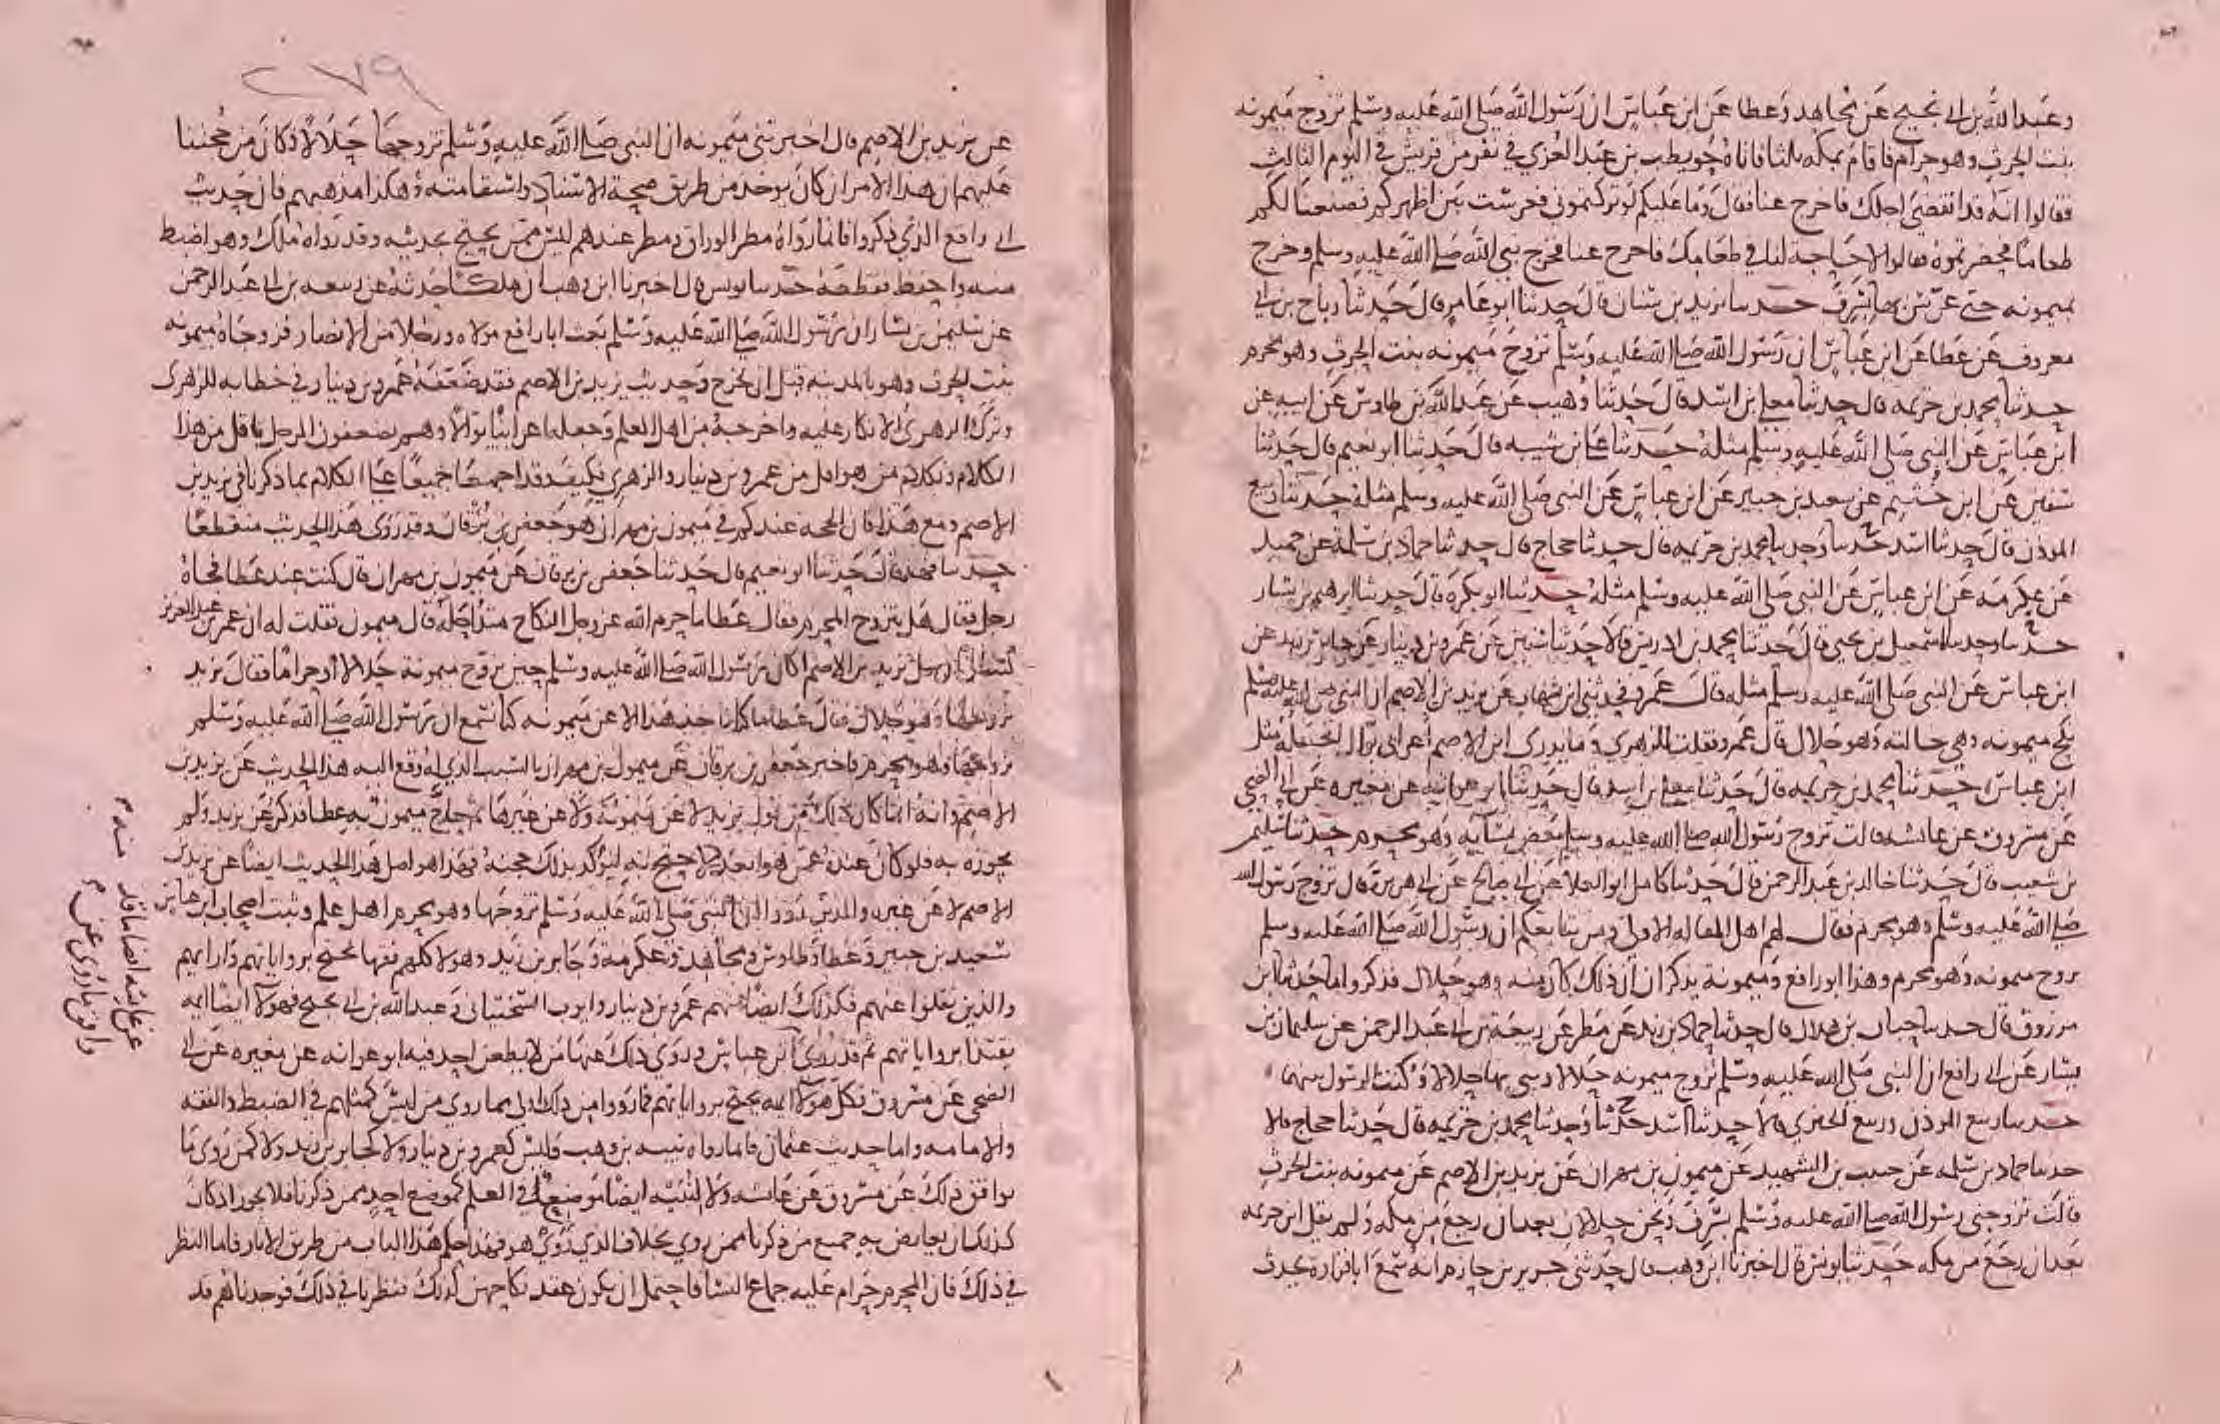 وعبد الله بن ابي نجيح عن مجاهد وعطا عن ابن عباس ان رسول الله صلى الله عليه وسلم تزوج ميمونه
بنت الحرث وهو حرام فاقام بمكه ثلثا فاتاه حويطب بن عبد العزى في نفر من قريش في اليوم الثالث
فقالوا انه قد انقضى اجلك فاخرج عنا فقال وما عليكم لو تركتموني فعرست بين اظهركم فصنعنا لكم
طعاما فحضرتموه فقالوا لا حاجة لنا في طعامك فاخرج عنا فخرج نبي الله صلى الله عليه وسلم وخرج
بميمونه حتى عرس بها بسرف حدثنا يزيد بن سنان قال حدثنا ابو عامر قال حدثنا رباح بن ابي
معروف عن عطا عن ابن عباس ان رسول الله صلى الله عليه وسلم تزوج ميمونه بنت الحرث وهو محرم
حدثنا محمد بن خزيمه قال حدثنا معلى بن اسد قال حدثنا وهيب عن عبد الله بن طاوس عن ابيه عن
ابن عباس عن النبي صلى الله عليه وسلم مثله حدثنا علي بن شيبه قال حدثنا ابو نعيم قال حدثنا
سفين عن ابن خثيم عن سعيد بن جبير عن ابن عباس عن النبي صلى الله عليه وسلم مثله حدثنا ربيع
الموذن قال حدثنا اسد ح وحدثنا محمد بن خزيمه قال حدثنا حجاج قال حدثنا حماد بن سلمة عن حميد
عن عكرمه عن ابن عباس عن النبي صلى الله عليه وسلم مثله حدثنا ابو بكرة قال حدثنا ابرهيم بن بشار
ح وحدثنا اسمعيل بن يحيى قال حدثنا محمد بن ادريس قالا حدثنا سفين عن عمرو بن دينار عن جابر بن زيد عن
ابن عباس عن النبي صلى الله عليه وسلم مثله قال عمرو فحدثني ابن شهاب عن يزيد بن الاصم ان النبي صلى الله عليه وسلم
نكح ميمونه وهي خالته وهو حلال قال عمرو فقلت للزهري وما يدري ابن الاصم اعرابي بوال اتجعله مثل
ابن عباس حدثنا محمد بن خزيمه قال حدثنا معلى بن اسد قال حدثنا ابو عوانه عن مغيره عن ابي الضحى
عن مسروق عن عائشه قالت تزوج رسول الله صلى الله عليه وسلم بعض نسايه وهو محرم حدثنا سليمن
بن شعيب قال حدثنا خالد بن عبد الرحمن قال حدثنا كامل ابو العلا عن ابي صالح عن ابي هريرة قال تزوج رسول الله
صلى الله عليه وسلم وهو محرم فقال لهم اهل المقاله الاولى ومن يتابعكم ان رسول الله صلى الله عليه وسلم
تزوج ميمونه وهو محرم وهذا ابو رافع وميمونة يذكران ان ذلك كان منه وهو حلال فذكروا ما حدثنا ابن
مرزوق قال حدثنا حبان بن هلال قال حدثنا حماد بن زيد عن مطر عن ربيعة بن ابي عبد الرحمن عن سليمان بن
يسار عن ابي رافع ان النبي صلى الله عليه وسلم تزوج ميمونه حلالا وبنى بها حلالا وكنت الرسول بينهما
حدثنا ربيع الموذن وربيع الجيزي قالا حدثنا اسد ح وحدثنا محمد بن خزيمه قال حدثنا حجاج قالا
حدثنا حماد بن سلمه عن حبيب بن الشهيد عن ميمون بن مهران عن يزيد بن الاصم عن ميمونه بنت الحرث
قالت تزوجني رسول الله صلى الله عليه وسلم بسرف ونحن حلالان بعد ان رجع من مكه ولم يقل ابن خزيمه
بعد ان رجع من مكه حدثنا يونس قال اخبرنا ابن وهب قال حدثني جرير بن حازم انه سمع ابا فزارة يحدث
٢٧٩
عن يزيد بن الاصم قال اخبرتني ميمونه ان النبي صلى الله عليه وسلم تزوجها حلالا فكان من حجتنا
عليهم ان هذا الامر ان كان يوخذ من طريق صحة الاسناد واستقامته وهكذا مذهبهم فان حديث
ابي رافع الذي ذكروا فانما رواه مطر الوراق ومطر عندهم ليس ممن يحتج بحديثه وقد رواه ملك وهو اضبط
منه واحفظ فقطعه حدثنا يونس قال اخبرنا ابن وهب ان ملكا حدثه عن ربيعه بن ابي عبد الرحمن
عن سليمن بن يسار ان رسول الله صلى الله عليه وسلم بعث ابا رافع مولاه ورجلا من الانصار فزوجاه ميمونه
بنت الحرث وهو بالمدينه قبل ان يخرج وحديث يزيد بن الاصم فقد ضعفه عمرو بن دينار في خطابه للزهري
وترك الزهري الانكار عليه واخرجه من اهل العلم وجعله اعرابيا بوالا وهم يضعفون الرجل باقل من هذا
الكلام وبكلام من هو اقل من عمرو بن دينار والزهري فكيف وقد اجمعا جميعا على الكلام بما ذكرنا في يزيد بن
الاصم ومع هذا فان الحجة عندكم في ميمون بن مهران هو جعفر بن برقان وقد روى هذا الحديث منقطعا
حدثنا فهد قال حدثنا ابو نعيم قال حدثنا جعفر بن برقان عن ميمون بن مهران قال كنت عند عطا فجاه
رجل فقال هل يتزوج المحرم فقال عطا ما حرم الله عز وجل النكاح منذ احله قال ميمون فقلت له ان عمر بن عبد العزيز
كتب الي ان سل يزيد بن الاصم اكان رسول الله صلى الله عليه وسلم حين تزوج ميمونة حلالا او حراما فقال يزيد
تزوجها وهو حلال فقال عطا ما كنا ناخذ هذا الا عن ميمونه كنا نسمع ان رسول الله صلى الله عليه وسلم
تزوجها وهو محرم فاخبر جعفر بن برقان عن ميمون بن مهران بالسبب الذي له وقع اليه هذا الحديث عن يزيد بن
الاصم وانه انما كان ذلك من قول يزيد لا عن ميمونة ولا عن غيرها ثم حاج ميمون به عطا فذكره عن يزيد ولم
يجوزه به فلو كان عنده عمن هو ابعد منه لاحتج به ليوكد بذلك حجته فهذا هو اصل هذا الحديث ايضا عن يزيد بن
الاصم لا عن غيره والذين رووا ان النبي صلى الله عليه وسلم تزوجها وهو محرم اهل علم وثبت اصحاب ابن عباس
سعيد بن جبير وعطا وطاوس ومجاهد وعكرمة وجابر بن زيد وهولا كلهم فقها يحتج برواياتهم وارايهم
والذين نقلوا عنهم فكذلك ايضا منهم عمرو بن دينار وايوب السختياني وعبد الله بن ابي نجيح فهولا ايضا ايمه
يقتدا برواياتهم ثم قد روي عن عائشه ايضا ما قد وافق ما روي عن ابن عباس وروى ذلك عنها من لا يطعن احد فيه ابو عوانه عن مغيره عن ابي
الضحى عن مسروق فكل هولا ايمه يحتج برواياتهم فما رووا من ذلك اولى مما روى من ليس كمثلهم في الضبط والفقه
والامامه واما حديث عثمان فانما رواه نبيه بن وهب وليس كعمرو بن دينار ولا كجابر بن زيد ولا كمن روى ما
يوافق ذلك عن مسروق عن عائشه ولا لنبيه ايضا موضع في العلم كموضع احد ممن ذكرنا فلا يجوز اذ كان
كذلك ان يعارض به جميع من ذكرنا ممن روى بخلاف الذي روى هو فهذا حكم هذا الباب من طريق الاثار فاما النظر
في ذلك فان المحرم حرام عليه جماع النسا فاحتمل ان يكون عقد نكاحهن كذلك فنظرنا في ذلك فوجدناهم قد